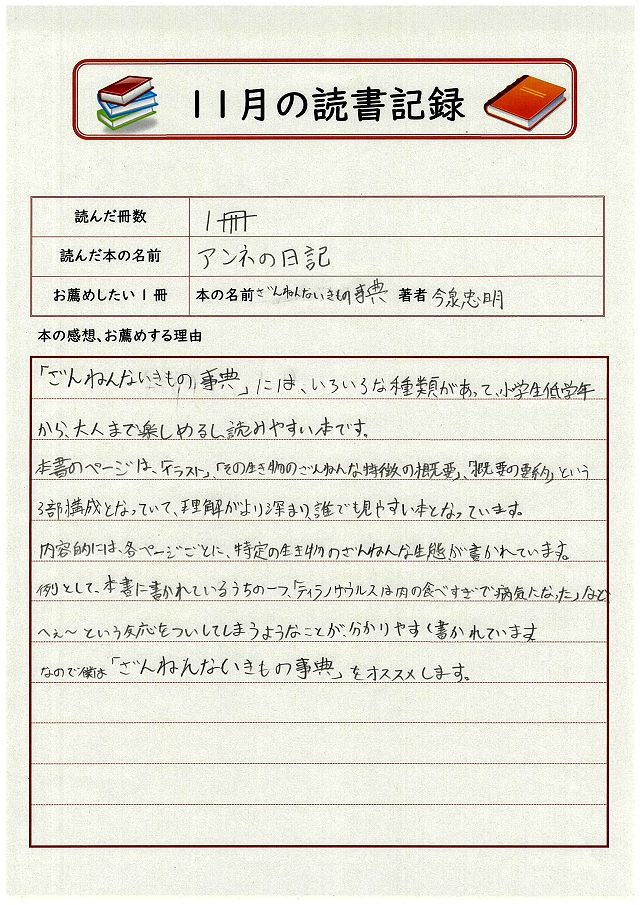 11月の読書記録
読んだ冊数 1冊
読んだ本の名前 アンネの日記
お薦めしたい1冊 本の名前 ざんねんないきもの事典 著者 今泉忠明
本の感想、お薦めする理由
「ざんねんないきもの事典」には、いろいろな種類があって、小学生低学年
から、大人まで楽しめるし、読みやすい本です。
本書のページは、「イラスト」、「その生き物のざんねんな特徴の概要」、「概要の要約」という
3部構成となっていて、理解がより深まり、誰でも見やすい本となっています。
内容的には、各ページごとに、特定の生き物のざんねんな生態が書かれています。
例として、本書に書かれているうちの一つ、「ティラノサウルスは肉の食べすぎで病気になった」など
へぇ〜という反応をついしてしまうようなことが、分かりやすく書かれています
なので僕は「ざんねんないきもの事典」をオススメします。